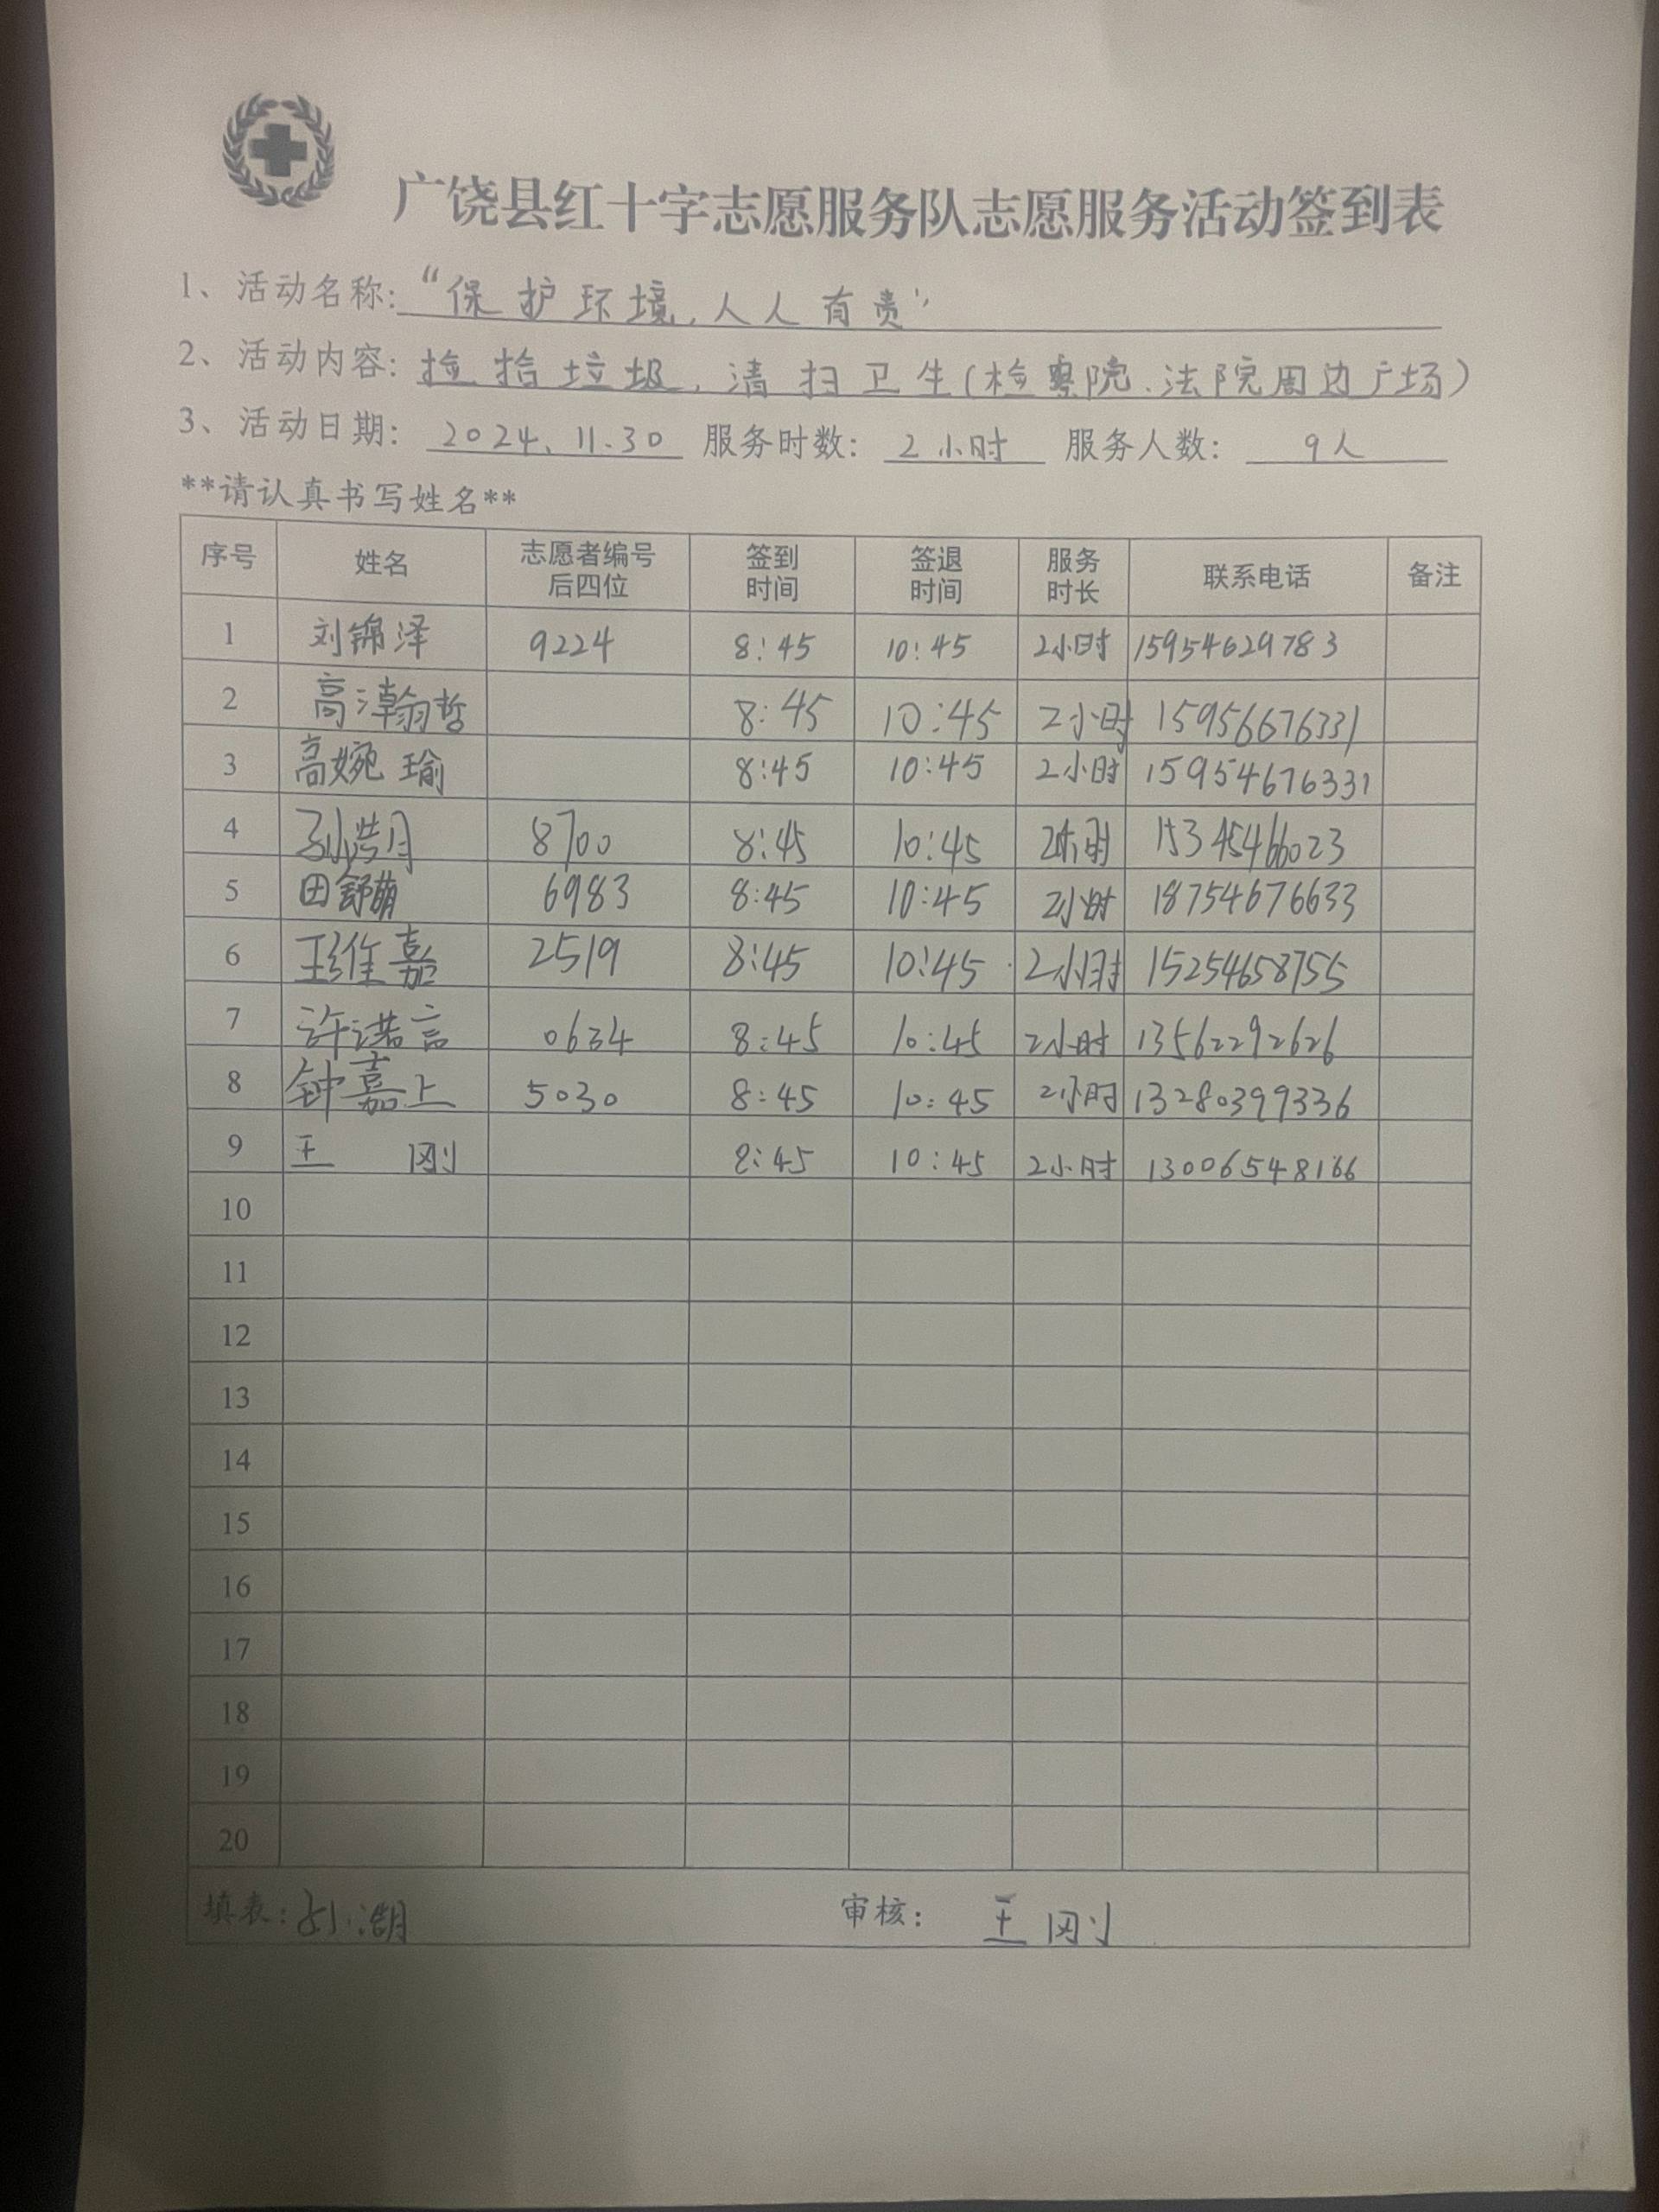 广饶县红十字志愿服务队志愿服务活动签到表
1、活动名称:“保护环境,人人有责”
2、活动内容:捡拾垃圾,清扫卫生(检察院、法院周边广场)
3、活动日期: 2024.11.30 服务时数: 2小时 服务人数: 9人
**请认真书写姓名**
序号 姓名 志愿者编号后四位 签到时间 签退时间 服务时长 联系电话 备注
1 刘锦泽 9224 8:45 10:45 2小时 15954629783
2 高瀚哲 8:45 10:45 2小时 15956676331
3 高婉瑜 8:45 10:45 2小时 15954676331
4 孙浩月 8700 8:45 10:45 2小时 15345466023
5 田舒萌 6983 8:45 10:45 2小时 18754676633
6 王维嘉 2519 8:45 10:45 2小时 15254658755
7 许诺言 0634 8:45 10:45 2小时 13562292626
8 钟嘉上 5030 8:45 10:45 2小时 13280399336
9 王刚 8:45 10:45 2小时 13006548166
10
11
12
13
14
15
16
17
18
19
20
填表: 审核: 王刚